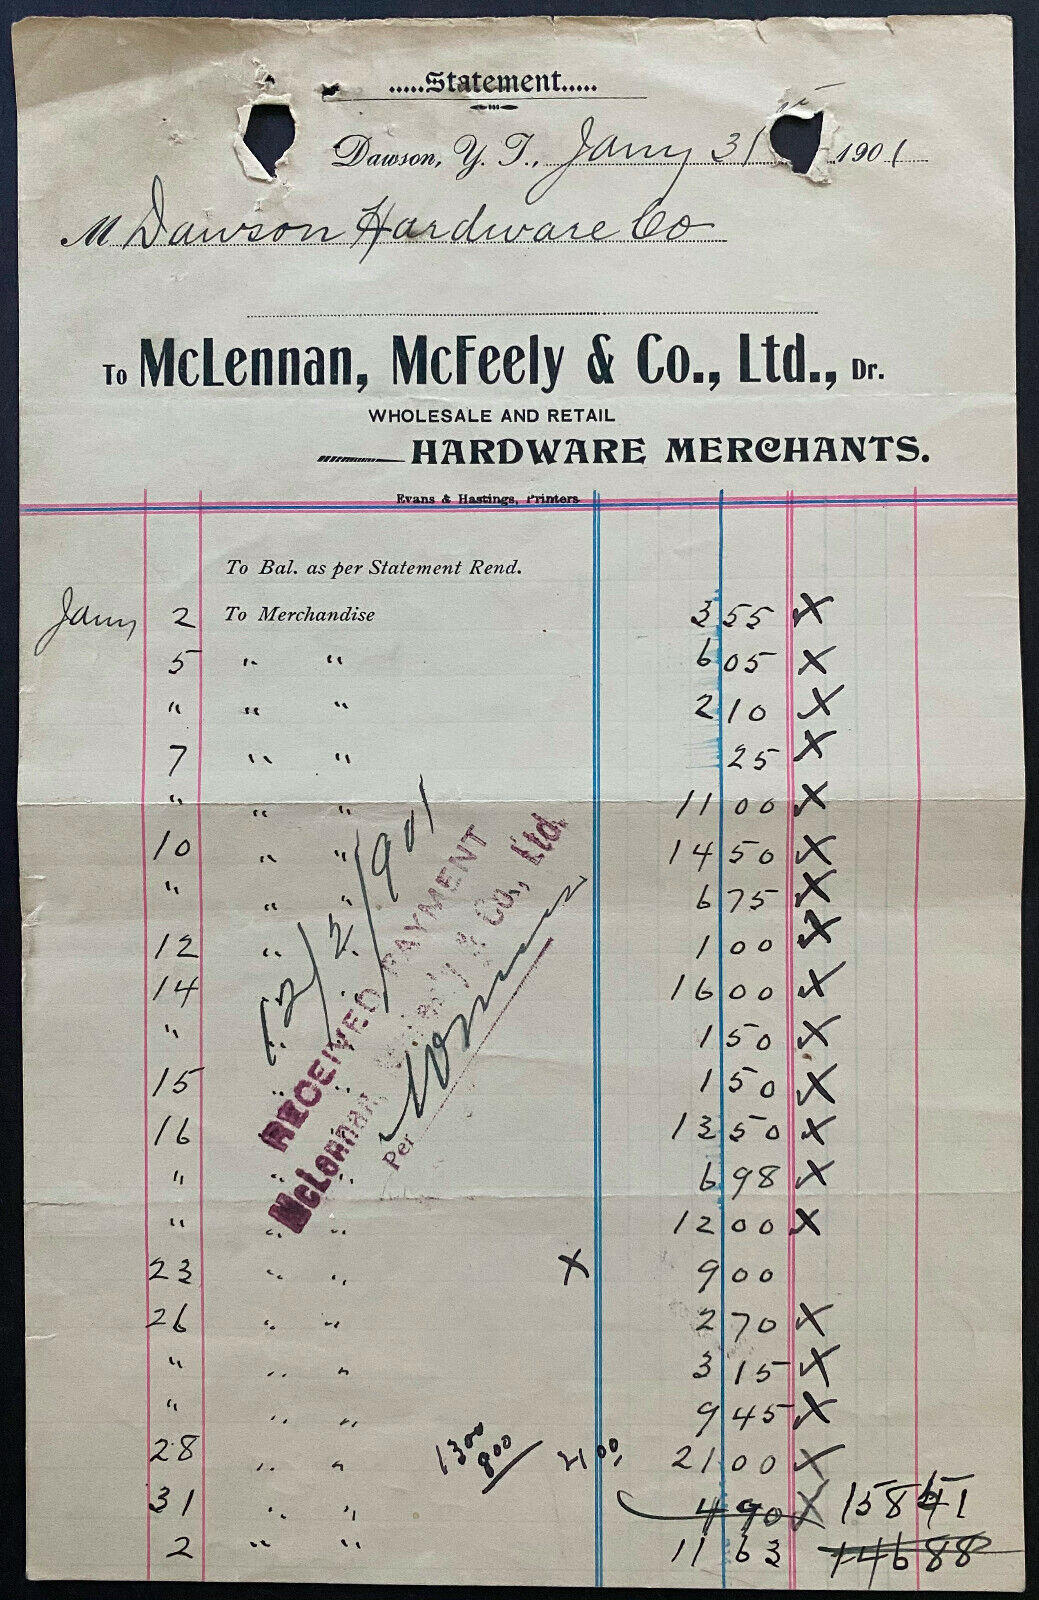 .....Statement.....
Dawson, Y. T., Jany 31 1901
M Dawson Hardware Co
To McLennan, McFeely & Co., Ltd., Dr.
WHOLESALE AND RETAIL
HARDWARE MERCHANTS.
Evans & Hastings, Printers
To Bal. as per Statement Rend.
Jany 2 To Merchandise 3 55 X
5 " " 6 05 X
" " " 2 10 X
7 " " 25 X
" " " 11 00 X
10 " " 14 50 X
" " " 6 75 X
12 " " 1 00 X
14 " " 16 00 X
" " " 1 50 X
15 " " 1 50 X
16 " " 13 50 X
" " " 6 98 X
" " " 12 00 X
23 " " X 9 00
26 " " 2 70 X
" " " 3 15 X
" " " 9 45 X
28 " " 13 00 8 00 21 00 21 00 X
31 " " 4 90 X 158 51
2 " " 11 63 146 88
12/2/1901
RECEIVED PAYMENT
McLennan, McFeely & Co., Ltd.
Per